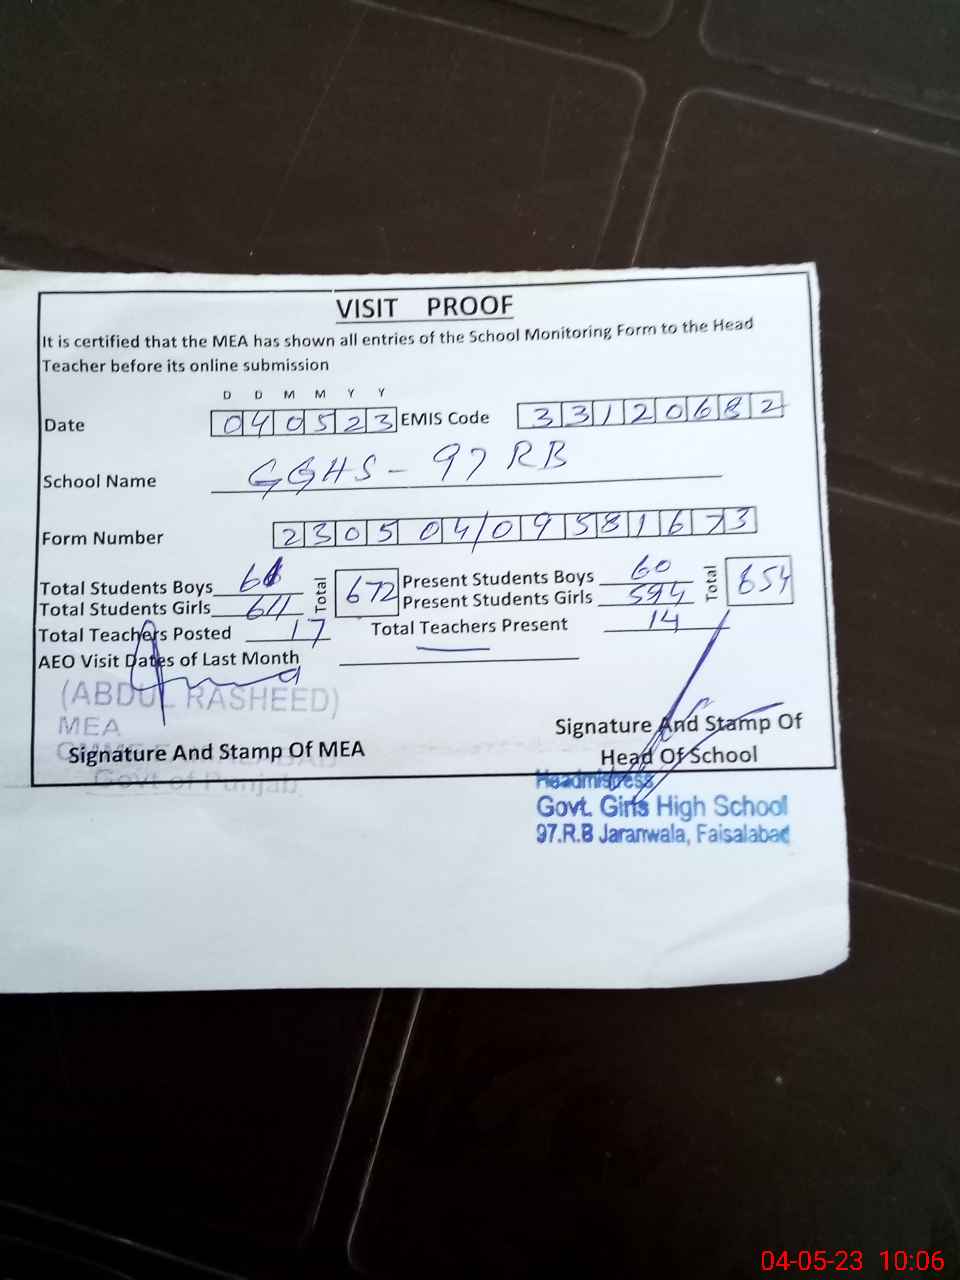 VISIT PROOF
It is certified that the MEA has shown all entries of the School Monitoring Form to the Head
Teacher before its online submission
D D M M Y Y
Date 040523 EMIS Code 33120682
School Name GGHS - 97 RB
Form Number 230504/09581673
Total Students Boys 61 Total 672 Present Students Boys 60 Total 654
Total Students Girls 611 Present Students Girls 594
Total Teachers Posted 17 Total Teachers Present 14
AEO Visit Dates of Last Month
(ABDUL RASHEED)
MEA
Signature And Stamp Of MEA
Govt of Punjab
Signature And Stamp Of
Head Of School
Headmistress
Govt. Girls High School
97.R.B Jaranwala, Faisalabad
04-05-23 10:06